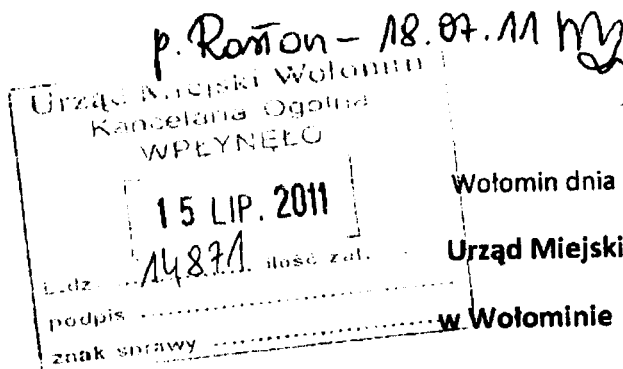 p. Roston - 18.07.11
Urząd Miejski Wołomin
Kancelaria Ogólna
WPŁYNĘŁO
15 LIP. 2011
L.dz. 14871 ilość zał. ....
podpis ....................
znak sprawy ....................
Wołomin dnia
Urząd Miejski
w Wołominie